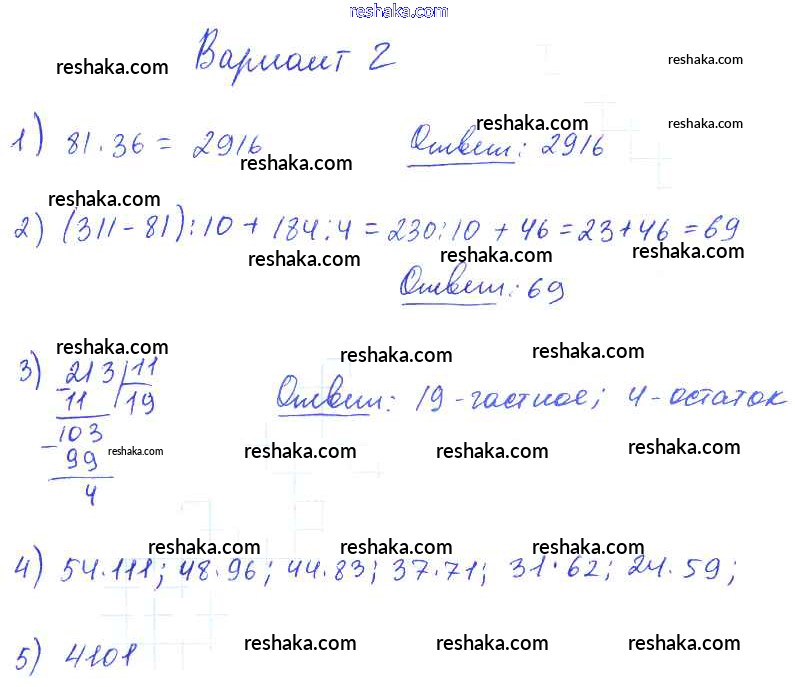 reshaka.com
Вариант 2
reshaka.com reshaka.com
1) 81·36 = 2916 Ответ: 2916
reshaka.com reshaka.com reshaka.com
reshaka.com
2) (311-81):10 + 184:4 = 230:10 + 46 = 23+46 = 69
reshaka.com reshaka.com reshaka.com
Ответ: 69
reshaka.com reshaka.com reshaka.com
3) 213 | 11
- 11 | 19
- 103
99
4
Ответ: 19 - частное; 4 - остаток
reshaka.com reshaka.com reshaka.com reshaka.com
reshaka.com reshaka.com reshaka.com
4) 54·111; 48·96; 44·83; 37·71; 31·62; 24·59;
reshaka.com reshaka.com reshaka.com
5) 4101